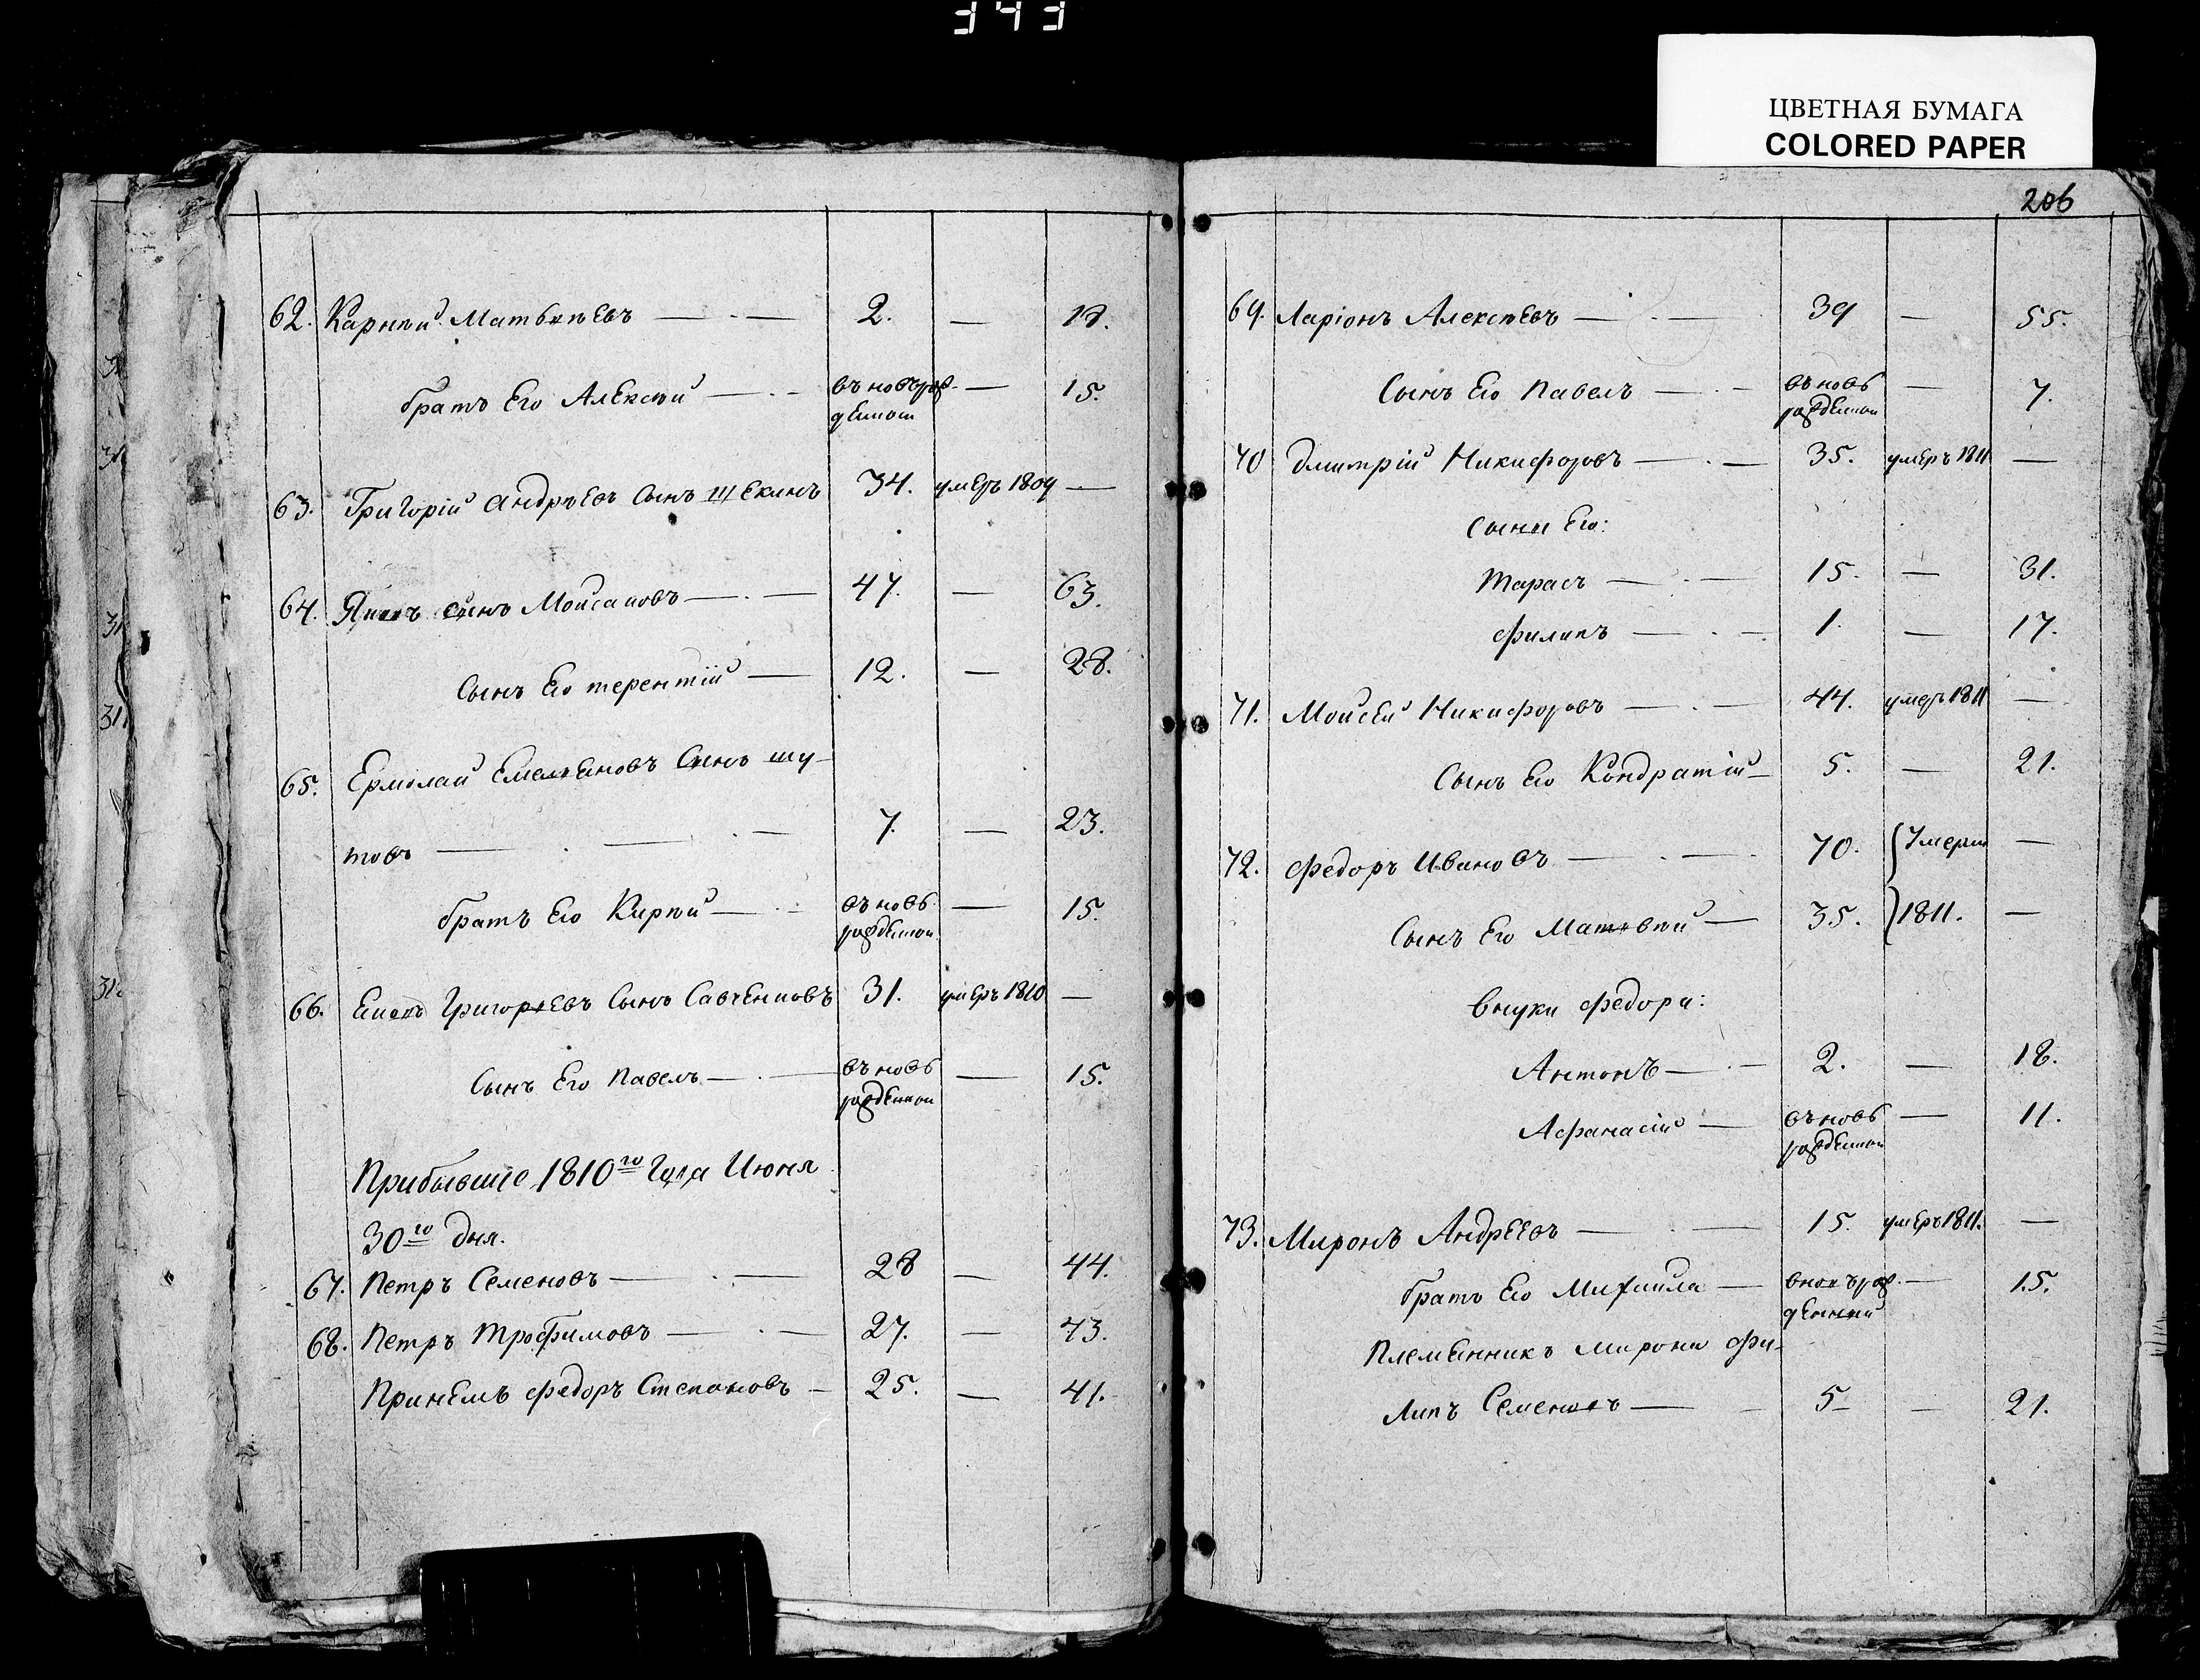 343
ЦВЕТНАЯ БУМАГА
COLORED PAPER
62. Карпѣй Матвѣевъ — · — 2. — 18.
братъ Его Алексѣй — · - въ новь рож- — 15.
денной
63. Григорій Андрѣевъ Сынъ Щекинъ 34. умеръ 1809 —
64. сынъ Мойсановъ — · — 47. — 63.
Сынъ Его терентій — 12. — 28.
65. Ермолай Емельяновъ Сынъ шу-
товъ — · — · — 7. — 23.
братъ Его Кирѣй — · - въ новь — 15.
рожденной
66. Григорьевъ Сынъ Савченковъ 31. умеръ 1810 —
Сынъ Его Павелъ — · — въ новь — 15.
рожденной
Прибывшіе 1810го Года Июня
30го дня.
67. Петръ Семеновъ — · — 28 — 44.
68. Петръ Трофимовъ — · — 27. — 43.
Пріемъ федоръ Степановъ — 25. — 41.
206
69. Ларіонъ Алексѣевъ — · — 39 — 55.
Сынъ Его Павелъ — · - въ новь — 7.
рожденной
70 Дмитрій Никифоровъ — · — 35. умеръ 1811 —
Сыни Его:
Тарасъ — · — 15. — 31.
филипъ — · — 1. — 17.
71. Мойсей Никифоровъ — · — 44. умеръ 1811 —
Сынъ Его Кондратій — 5. — 21.
72. федоръ Ивановъ — · — 70. Умерли —
Сынъ Его Матвѣй — 35. 1811. —
внуки федора:
Антонъ — · - 2. — 18.
Афанасій — въ новь — 11.
рожденной
73. Миронъ Андрѣевъ — — 15. умеръ 1811. —
братъ Его Михайла — вновь рож- — 15.
денный
Племянникъ мирона фи-
липъ Семеновъ — — 5 — 21.